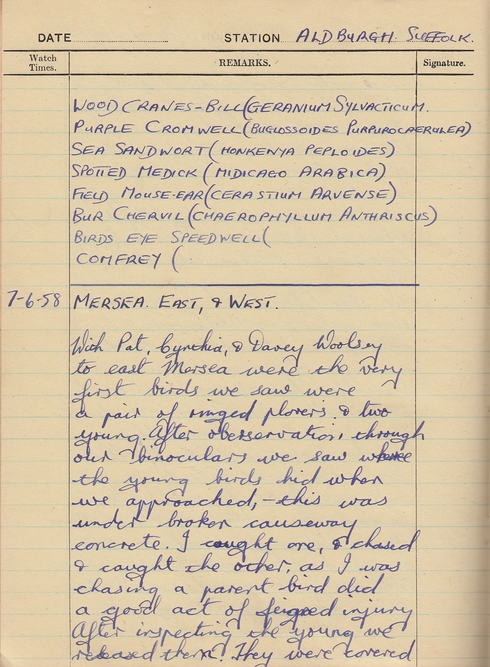 DATE STATION ALDBURGH. SUFFOLK.
Watch Times. REMARKS. Signature.
WOOD CRANES-BILL (GERANIUM SYLVACTICUM.
PURPLE CROMWELL (BUGLOSSOIDES PURPUROCAERULEA)
SEA SANDWORT (HONKENYA PEPLOIDES)
SPOTTED MEDICK (MIDICAGO ARABICA)
FIELD MOUSE-EAR (CERASTIUM ARVENSE)
BUR CHERVIL (CHAEROPHYLLUM ANTHRISCUS)
BIRDS EYE SPEEDWELL (
COMFREY (
7-6-58 MERSEA. EAST, & WEST.
With Pat, Cynthia, & Davey Woolsey
to east Mersea were the very
first birds we saw were
a pair of ringed plovers. & two
young. After oberservation, through
our binoculars we saw where
the young birds hid when
we approached, - this was
under broken causeway
concrete. I caught one, & chased
& caught the other, as I was
chasing a parent bird did
a good act of feigned injury
After inspecting the young we
released them. They were covered